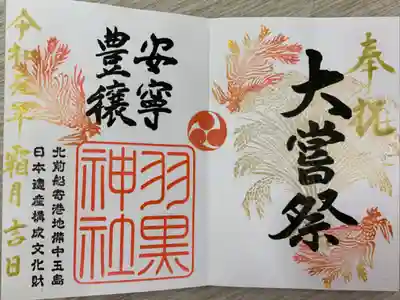 奉拝
大嘗祭
安寧
豊穣
羽黒
神社
北前船寄港地備中玉島
日本遺産構成文化財
令和元年 霜月吉日